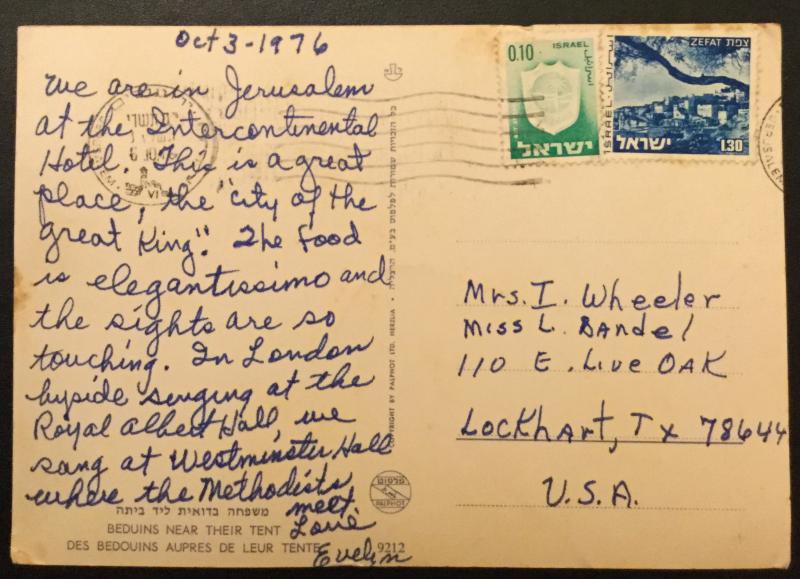 Oct 3-1976
We are in Jerusalem
at the Intercontinental
Hotel. This is a great
place, the "city of the
great King". The food
is elegantissimo and
the sights are so
touching. In London
byside singing at the
Royal Albert Hall, we
sang at Westminster Hall
where the Methodists
meet.
Love
Evelyn
משפחה בדואית ליד ביתה
BEDUINS NEAR THEIR TENT
DES BEDOUINS AUPRES DE LEUR TENTE
9212
כל הזכויות שמורות לפלפוט בע"מ, הרצליה • COPYRIGHT BY PALPHOT LTD. HERZLIA
פלפוט
PALPHOT
0.10 ISRAEL
ישראל
ZEFAT צפת
ISRAEL
ישראל 1.30
Mrs. I. Wheeler
Miss L. Bandel
110 E. Live OAK
Lockhart, Tx 78644
U.S.A.